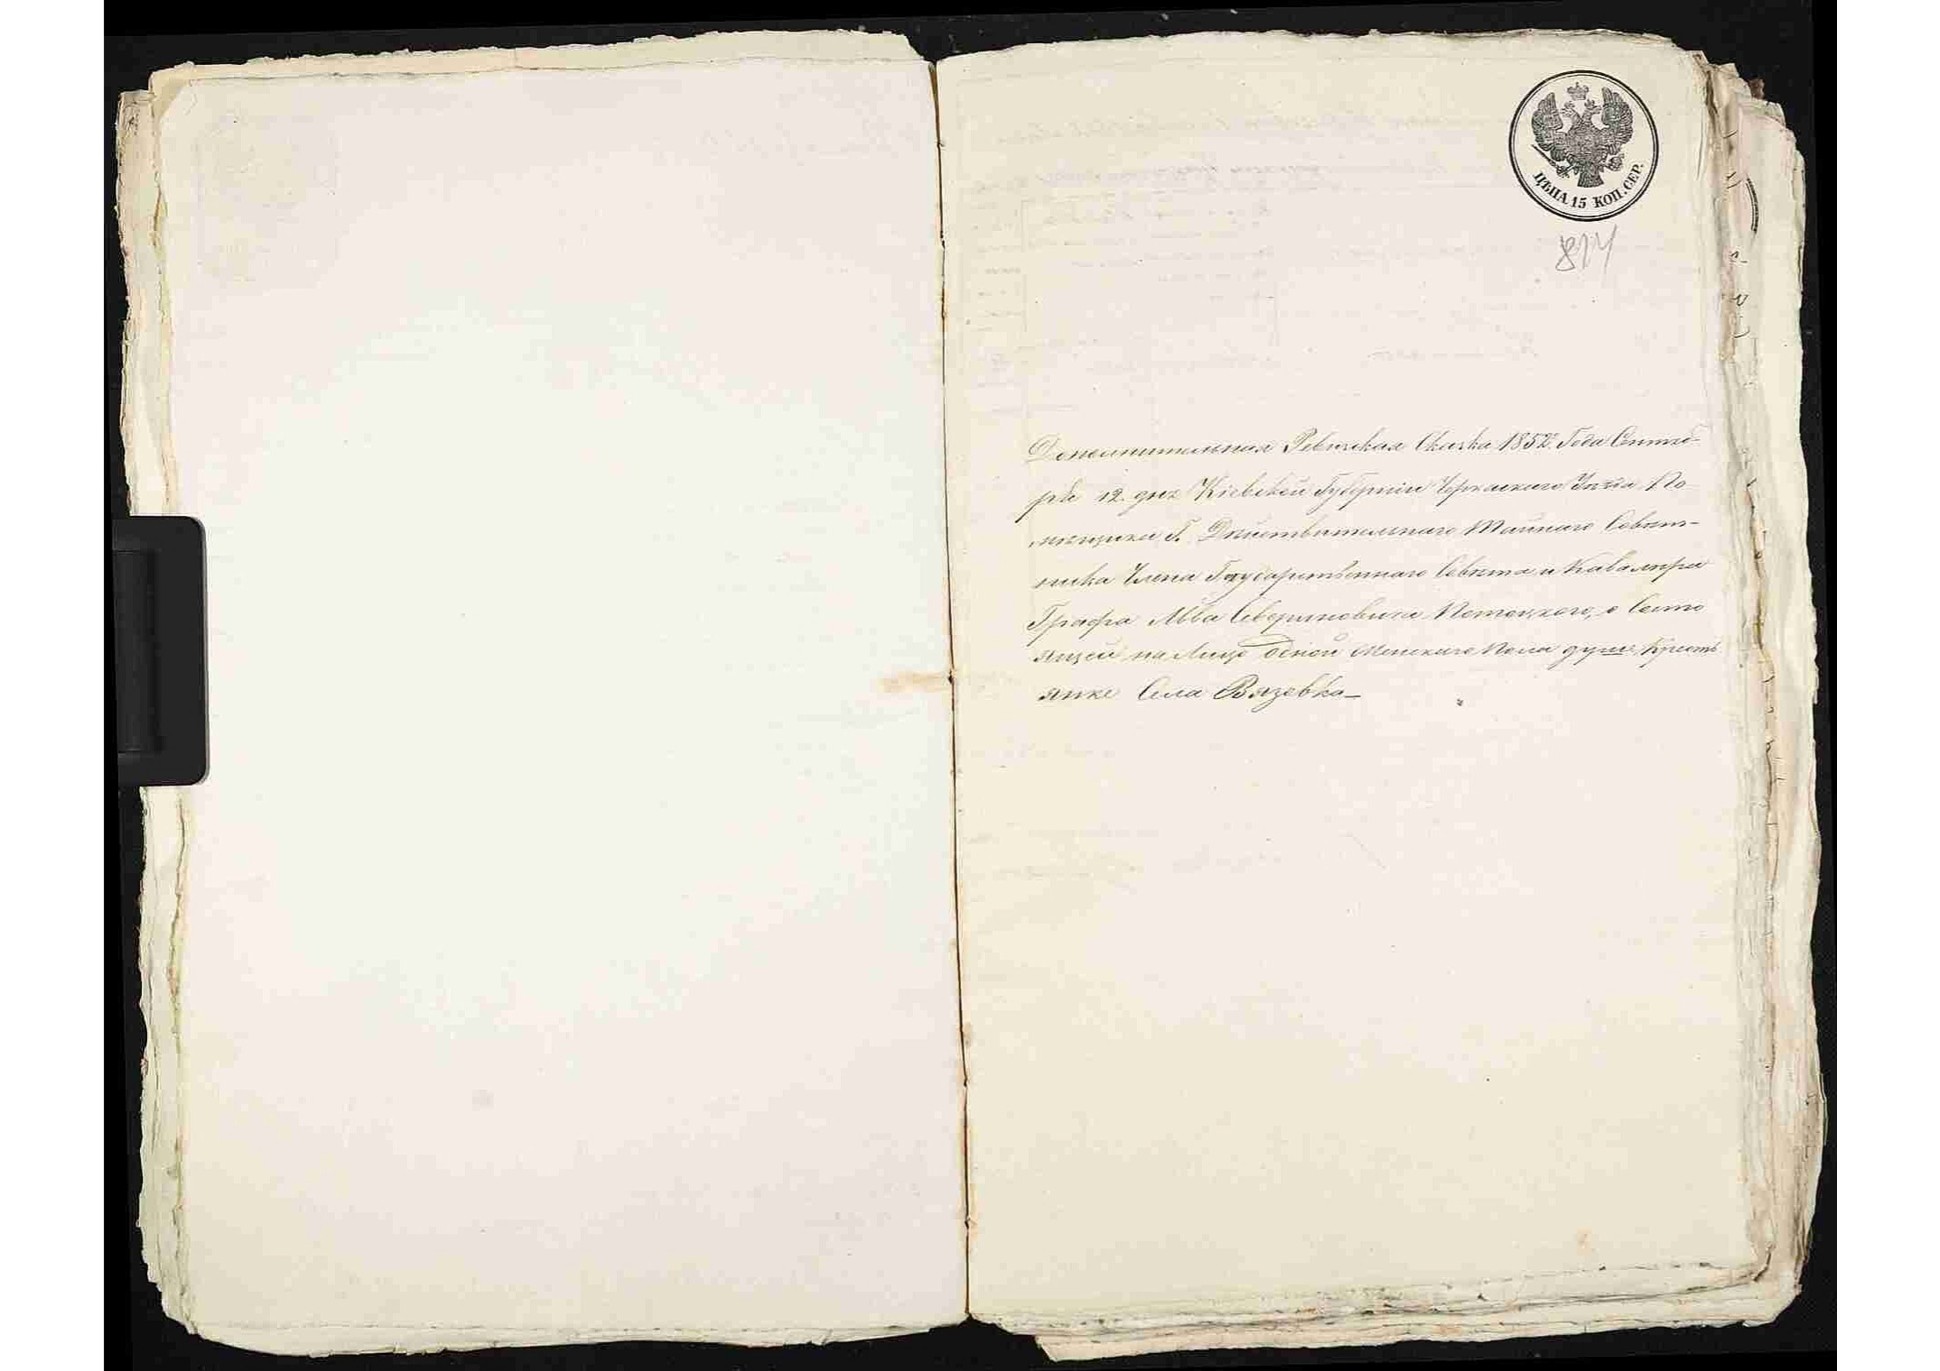 ЦѢНА 15 КОП. СЕР.
814
Дополнительная Ревизская Сказка 1852. Года Сентяб-
ря 12. дня Кіевской Губерніи Черкаскаго Уезда По-
мещика Г. Действительнаго Тайнаго Совет-
ника Члена Государственнаго Совета и Кавалера
Графа Льва Севериновича Потоцкого, о Состо
ящей на Лицо одной Женскаго Пола душе Крестъ
янке Села Вязевка